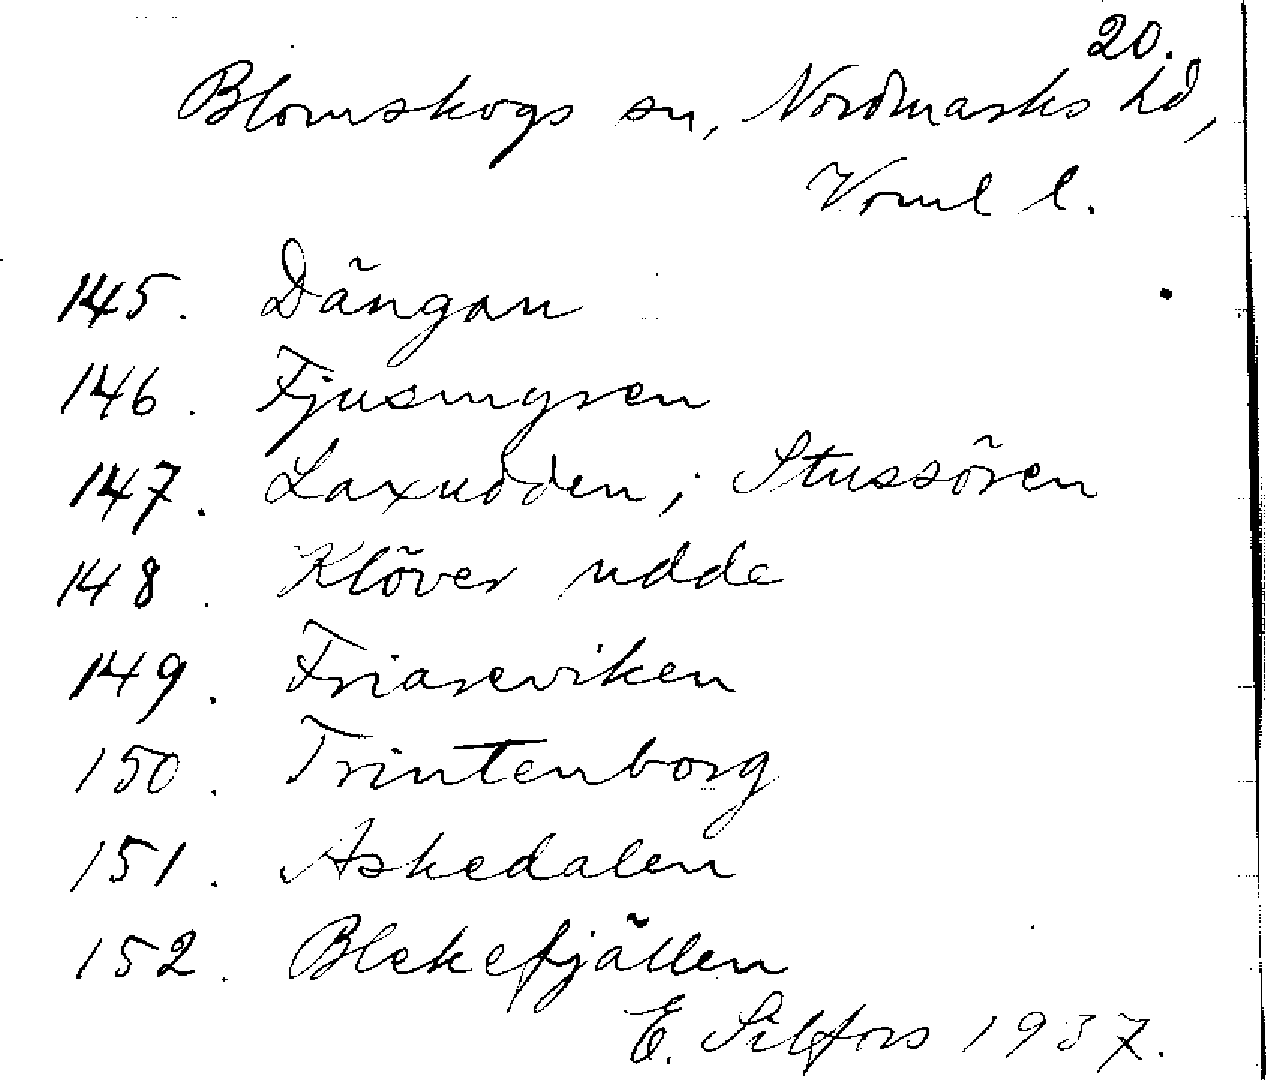 20.
Blomskogs sn, Nordmarks hd,
Vrml l.
145. Dängan
146. Fjusmyren
147. Laxudden; Stussören
148. Klöver udde
149. Friareviken
150. Trintenborg
151. Askedalen
152. Blekefjällen
E. Silfors 1937.